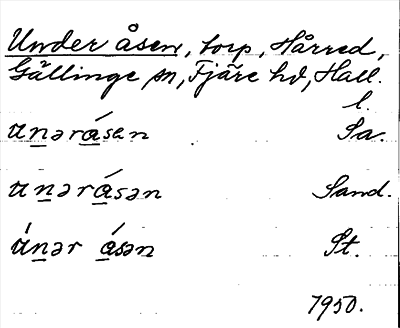 Under åsen, torp, Hårred,
Gällinge sn, Fjäre hd, Hall.
l.
unərásən Sa.
unərásən Sand.
únər ásən St.
1950.